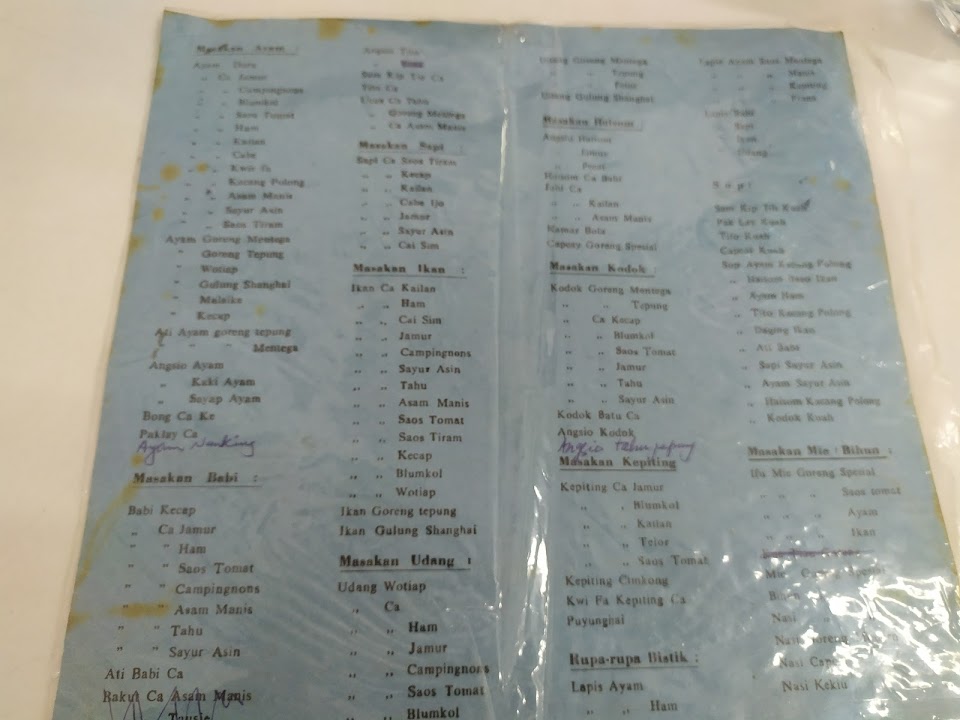 Masakan Ayam :
Ayam
„ Ca Jamur
„ „ Campingnons
„ „ Blumkol
„ „ Saos Tomat
„ „ Ham
„ „ Kailan
„ „ Cabe
„ „ Kwie fa
„ „ Kacang Polong
„ „ Asam Manis
„ „ Sayur Asin
„ „ Saos Tiram
Ayam Goreng Mentega
" Goreng Tepung
" Wotiap
" Gulung Shanghai
" Malaika
" Kecap
Ati Ayam goreng tepung
" " " Mentega
Angsio Ayam
„ Kaki Ayam
„ Sayap Ayam
Bong Ca Ke
Paklay Ca
Ayam Nanking
Masakan Babi :
Babi Kecap
„ Ca Jamur
" " Ham
" " Saos Tomat
" " Campingnons
" " Asam Manis
" " Tahu
" " Sayur Asin
Ati Babi Ca
Rakut Ca Asam Manis
Angsio Tito
Tito Ca
„ Goreng Mentega
„ Ca Asam Manis
Masakan Sapi :
Sapi Ca Saos Tiram
„ „ Kecap
„ „ Kailan
„ „ Cabe Ijo
„ „ Jamur
„ „ Sayur Asin
„ „ Cai Sim
Masakan Ikan :
Ikan Ca Kailan
„ „ Ham
„ „ Cai Sim
„ „ Jamur
„ „ Campingnons
„ „ Sayur Asin
„ „ Tahu
„ „ Asam Manis
„ „ Saos Tomat
„ „ Saos Tiram
„ „ Kecap
„ „ Blumkol
„ „ Wotiap
Ikan Goreng tepung
Ikan Gulung Shanghai
Masakan Udang :
Udang Wotiap
„ Ca
„ „ Ham
„ „ Jamur
„ „ Campingnons
„ „ Saos Tomat
„ „ Blumkol
Udang Goreng Mentega
„ „ Tepung
„ „ Telor
Udang Gulung Shanghai
Masakan Haisom :
Angsio Haisom
Haisom Ca Babi
„ „ Kailan
„ „ Asam Manis
Capcay Goreng Spesial
Masakan Kodok :
Kodok Goreng Mentega
„ „ Tepung
„ Ca Kecap
„ „ Blumkol
„ „ Saos Tomat
„ „ Jamur
„ „ Tahu
„ „ Sayur Asin
Kodok Batu Ca
Angsio Kodok
Angsio
Masakan Kepiting :
Kepiting Ca Jamur
„ „ Blumkol
„ „ Kailan
„ „ Telor
„ „ Saos Tomat
Kepiting Cunkong
Kwi Fa Kepiting Ca
Puyunghai
Rupa-rupa Bistik :
Lapis Ayam
„ „ Ham
Lapis Ayam Saos Mentega
„ „ „ Manis
„ „ „ Kepiting
Lapis Babi
„ Sapi
„ Udang
Sop :
Tito Kuah
Capcai Kuah
Sop Ayam Kacang Polong
„ Ayam Ham
„ Tito Kacang Polong
„ Daging Ikan
„ Ati Babi
„ Sapi Sayur Asin
„ Ayam Sayur Asin
„ Haisom Kacang Polong
„ Kodok Kuah
Masakan Mie / Bihun :
Ifu Mie Goreng Spesial
„ „ „ Saos tomat
„ „ „ Ayam
„ „ „ Ikan
Mie Goreng Spesial
Nasi
Nasi Goreng
Nasi Cape
Nasi Kekiu